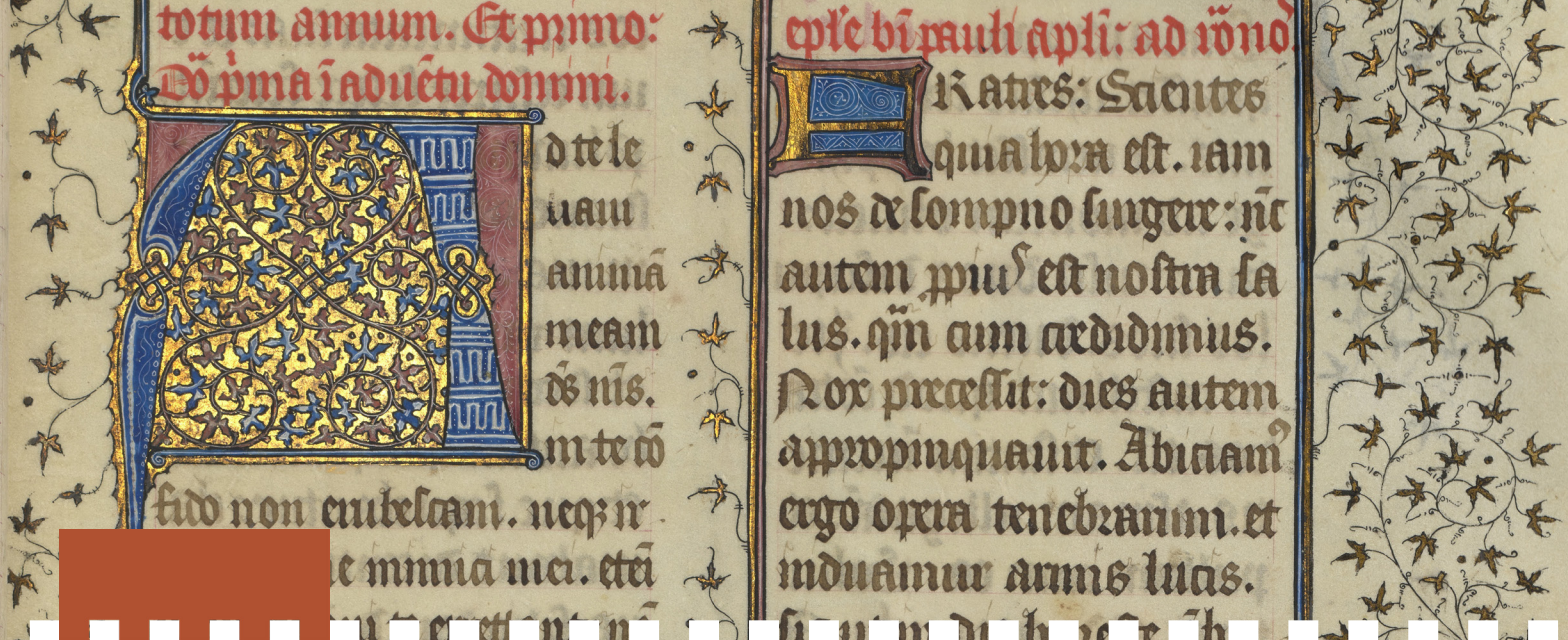 totum annum. Et primo:
Dō p̄ma ī aduētu domini.
Ad te le
uaui
animā
meam
d̄s m̄s.
in te cō
fido non erubescam. neqꝫ ir
inimici mei. etēi
ep̄le bī pauli apl̄i: ad rōno
FRatres: Scientes
quia hora est. iam
nos de sompno surgere: nc̄
autem ꝓpiuˢ est nostra sa
lus. qm̄ cum credidimus.
Nox precessit: dies autem
appropinquauit. Abiciamꝰ
ergo opera tenebrarum. et
induamur armis lucis.